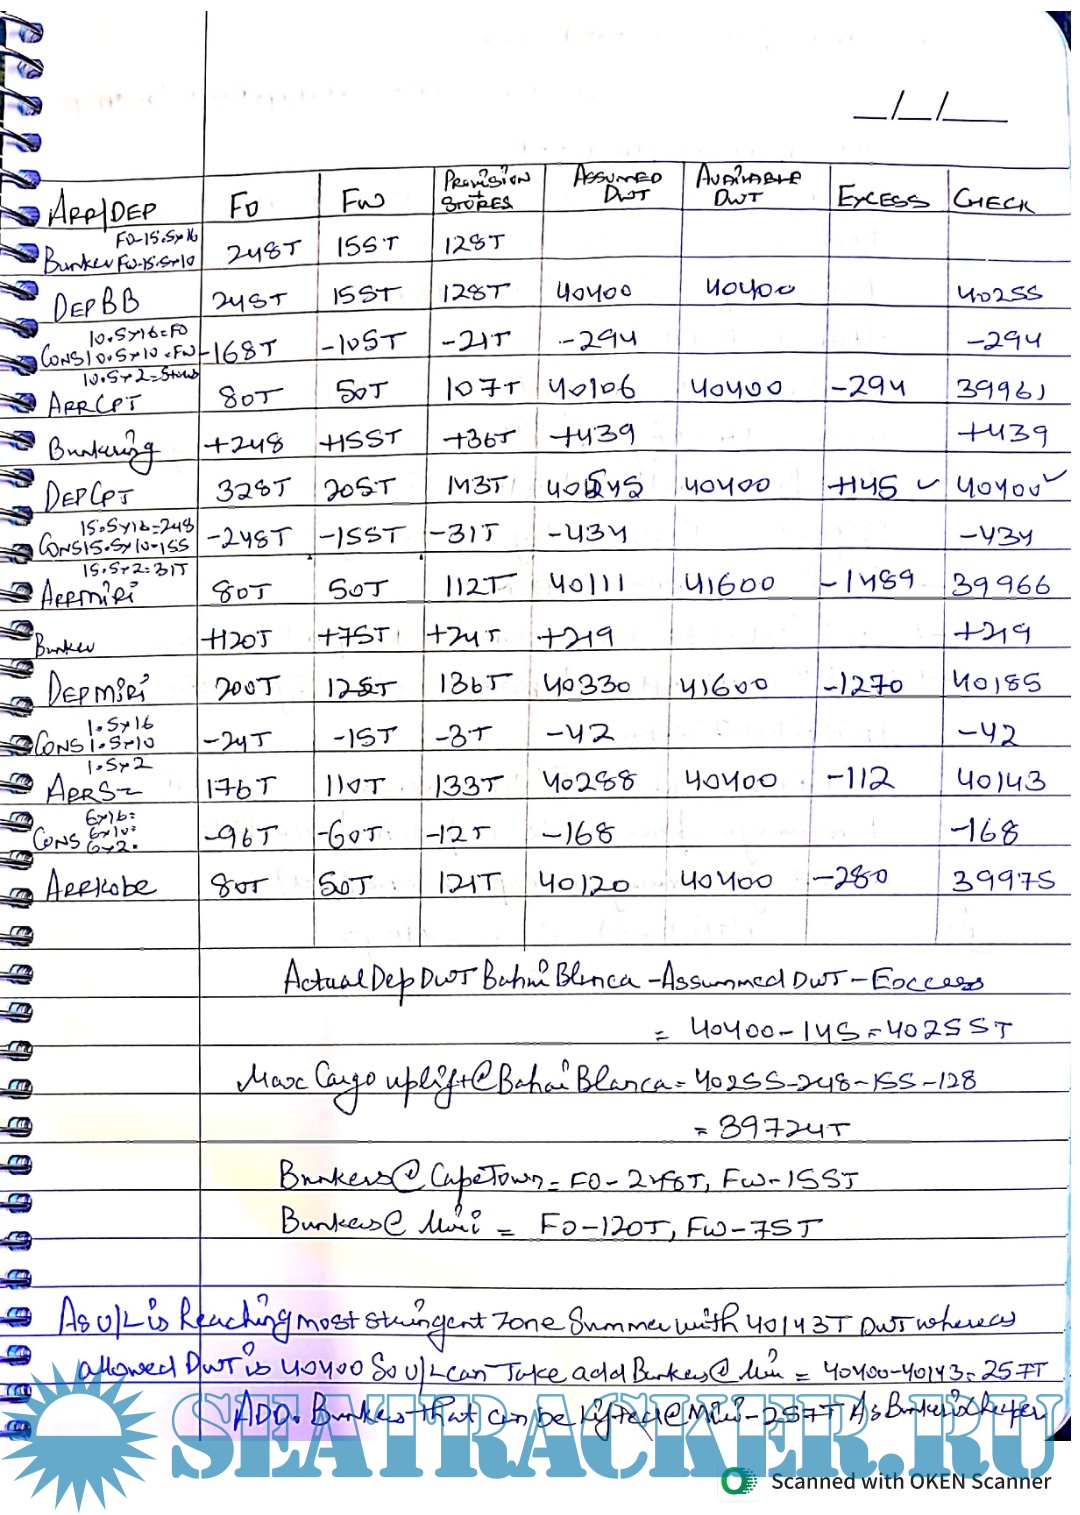 _/_/___
ARR/DEP FO FW PROVISION + STORES ASSUMED DWT AVAILABLE DWT EXCESS CHECK
Bunker FO-15.5x16 FW-15.5x10 248T 155T 128T
DEPBB 248T 155T 128T 40400 40400 40255
CONS 10.5x16=FO 10.5x10=FW 10.5x2=Stores -168T -105T -21T -294 -294
ARRCPT 80T 50T 107T 40106 40400 -294 39961
Bunkering +248 +155T +36T +439 +439
DEPCPT 328T 205T 143T 40545 40400 +145 ✓ 40400 ✓
CONS 15.5x16=248 15.5x10=155 15.5x2=31T -248T -155T -31T -434 -434
ARRMiri 80T 50T 112T 40111 41600 -1489 39966
Bunker +120T +75T +24T +219 +219
DEPMiri 200T 125T 136T 40330 41600 -1270 40185
CONS 1.5x16 1.5x10 1.5x2 -24T -15T -3T -42 -42
ARRSZ 176T 110T 133T 40288 40400 -112 40143
CONS 6x16= 6x10= 6x2= -96T -60T -12T -168 -168
ARRKobe 80T 50T 121T 40120 40400 -280 39975
Actual Dep DWT Bahai Blanca - Assummed DWT - Excess
= 40400-145=40255T
Max Cargo uplift@Bahai Blanca=40255-248-155-128
= 39724T
Bunkers@CapeTown= FO-248T, FW-155T
Bunkers@ Miri = FO-120T, FW-75T
As V/L is Reaching most stringent zone Summer with 40143T DWT whereas
allowed DWT is 40400 So V/L can Take add Bunkers@Miri = 40400-40143=257T
ADD. Bunkers that can be lifted@Miri-257T As Bunker is cheaper
SEATRACKER.RU
Scanned with OKEN Scanner